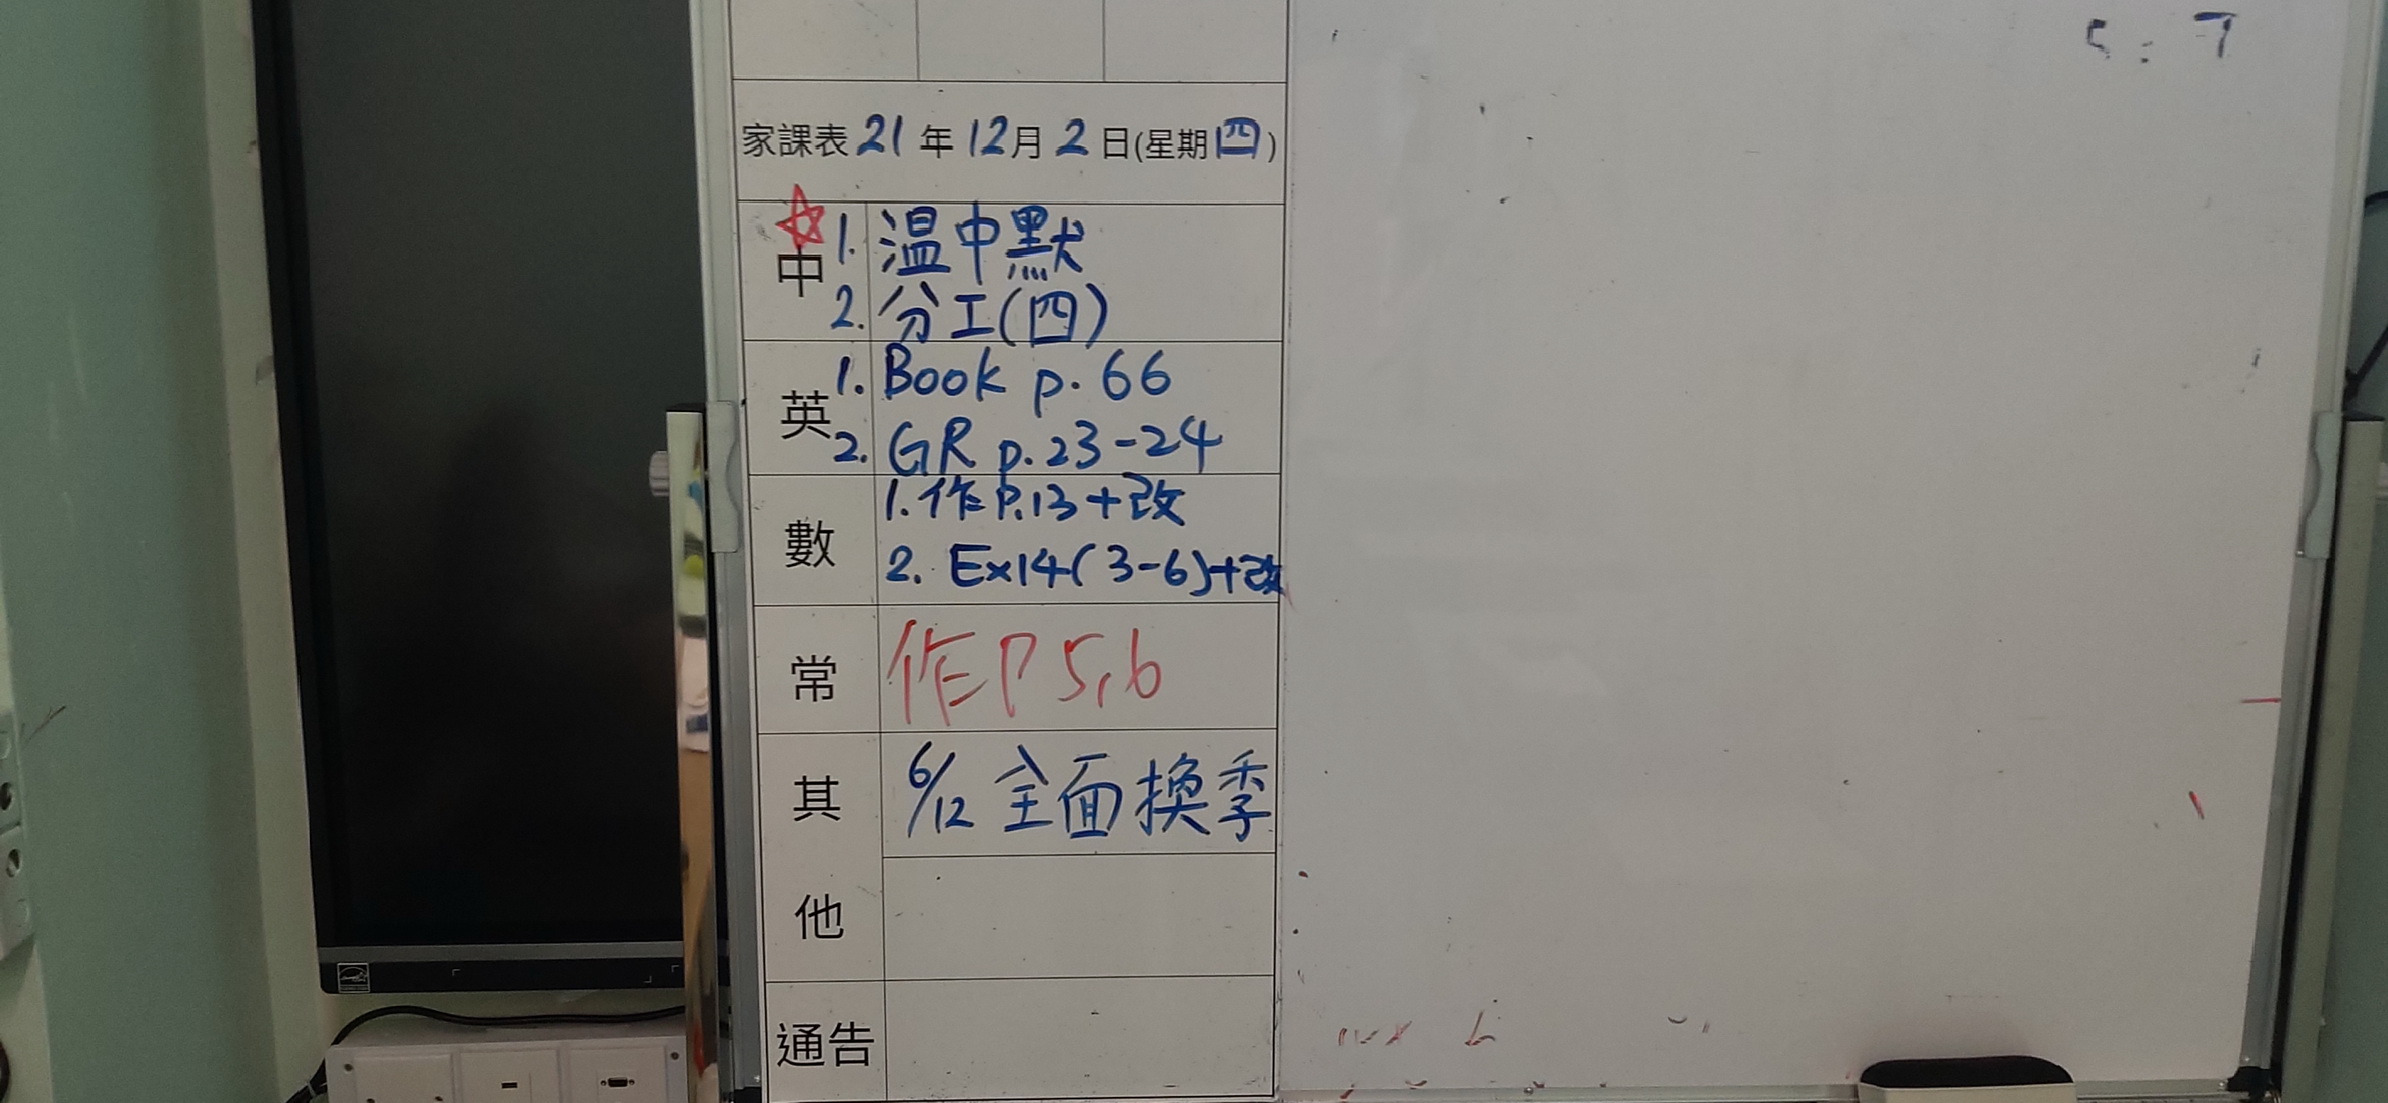 5 : 7
家課表 21 年 12 月 2 日(星期 四)
中
1. 溫中默
2. 分工(四)
英
1. Book p. 66
2. GR p. 23-24
數
1. 作 P.13 + 改
2. Ex14(3-6)+改
常
作 P 5,6
其他
6/12 全面換季
通告